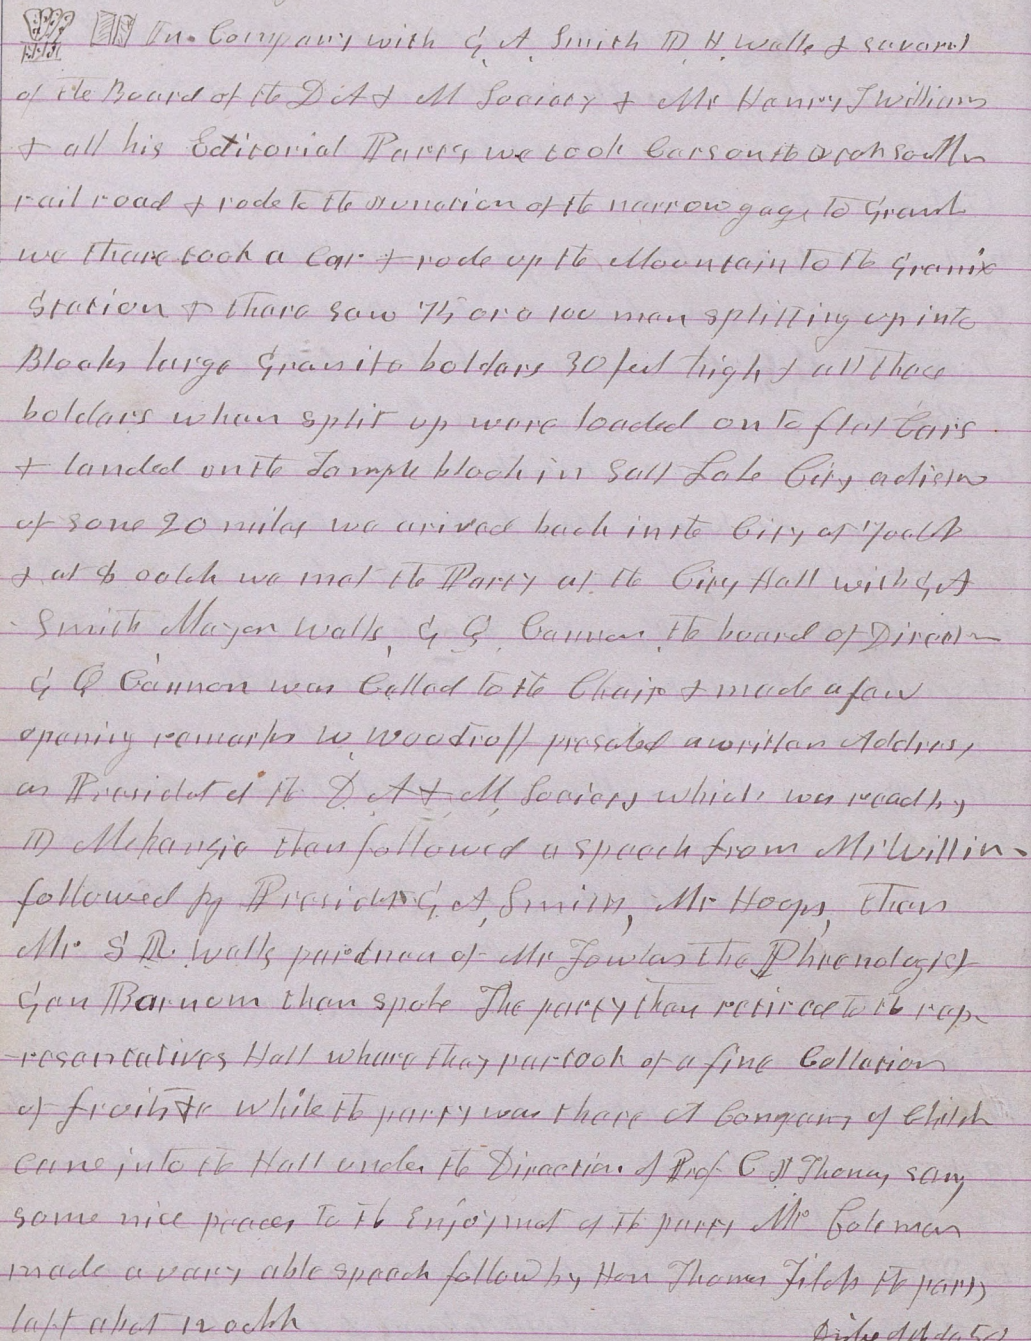 In Company with G A Smith D H Wells & several
of the Board of the D A & M Society & Mr Henry T Williams
& all his Editorial Party we took Cars on the Utah South
rail road & rode to the Junction of the narrow gage to Granit
we there took a Car & rode up the Mountain to the Granix
Station & there saw 75 or a 100 men splitting up into
Blocks large Granite bolders 30 feet high & all these
bolders when split up were loaded onto flat Cars
& landed on the Temple block in Salt Lake City a distan
of some 20 miles we arived back in the City at 7 oclk
& at 8 oclok we met the Party at the City Hall with G A
Smith Mayor Wells, G Q Cannon the board of Direct
G Q Cannon was Called to the Chair & made a few
opening remarks W Woodroff preseted a written Address,
as Presidet of the D. A & M, Society which was read by
D McKenzie then followed a speech from Mr Willims
followed by Presidet G, A, Smith, Mr Hoops, then
Mr S R. Wells partner of Mr Fowler the Phrenologist
Gen Barnom then spoke The party then retired to the rep
-resentatives Hall where they partook of a fine Collation
of fruit &c while the party was there A Company of Childr
came into the Hall under the Direction of Prof C J Thomas sang
some nice peaces to the Enjoymet of the party Mr Coleman
made a very able speech follow by Hon Thomas Fitch the party
left about 12 oclk